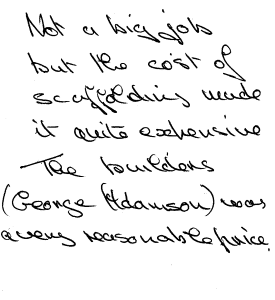 Not a big job
but the cost of
scaffolding made
it quite expensive
The builders
(George Adamson) was
a very reasonable price.